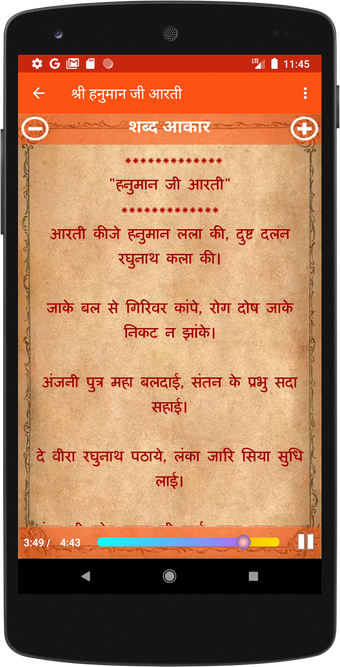 LTE 11:45
श्री हनुमान जी आरती
शब्द आकार
*************
"हनुमान जी आरती"
*************
आरती कीजे हनुमान लला की, दुष्ट दलन
रघुनाथ कला की।
जाके बल से गिरिवर कांपे, रोग दोष जाके
निकट न झांके।
अंजनी पुत्र महा बलदाई, संतन के प्रभु सदा
सहाई।
दे वीरा रघुनाथ पठाये, लंका जारि सिया सुधि
लाई।
3:49 / 4:43